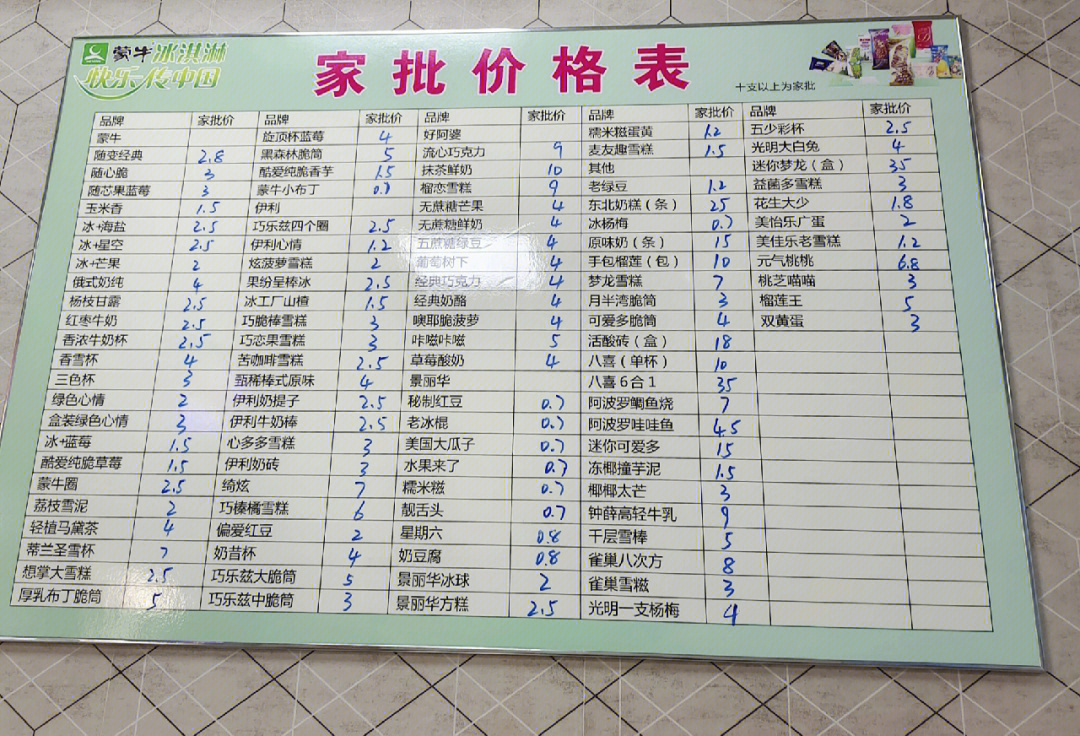 蒙牛 冰淇淋
快乐传中国
家批价格表
十支以上为家批
品牌 家批价 品牌 家批价 品牌 家批价 品牌 家批价 品牌 家批价
蒙牛 旋顶杯蓝莓 4 好阿婆 糯米糍蛋黄 1.2 五少彩杯 2.5
随变经典 2.8 黑森林脆筒 5 流心巧克力 9 麦友趣雪糕 1.5 光明大白兔 4
随心脆 3 酷爱纯脆香芋 1.5 抹茶鲜奶 10 其他 迷你梦龙（盒） 35
随芯果蓝莓 3 蒙牛小布丁 0.7 榴恋雪糕 9 老绿豆 1.2 益菌多雪糕 3
玉米香 1.5 伊利 无蔗糖芒果 4 东北奶糕（条） 25 花生大少 1.8
冰+海盐 2.5 巧乐兹四个圈 2.5 无蔗糖鲜奶 4 冰杨梅 0.7 美怡乐广蛋 2
冰+星空 2.5 伊利心情 1.2 五蔗糖绿豆 4 原味奶（条） 15 美佳乐老雪糕 1.2
冰+芒果 2 炫菠萝雪糕 2 葡萄树下 4 手包榴莲（包） 10 元气桃桃 6.8
俄式奶纯 4 果纷呈棒冰 2.5 经典巧克力 4 梦龙雪糕 7 桃芝喵喵 3
杨枝甘露 2.5 冰工厂山楂 1.5 经典奶酪 4 月半湾脆筒 3 榴莲王 5
红枣牛奶 2.5 巧脆棒雪糕 3 噢耶脆菠萝 4 可爱多脆筒 4 双黄蛋 3
香浓牛奶杯 2.5 巧恋果雪糕 3 咔嗞咔嗞 5 活酸砖（盒） 18
香雪杯 4 苦咖啡雪糕 2.5 草莓酸奶 4 八喜（单杯） 10
三色杯 3 甄稀棒式原味 4 景丽华 八喜6合1 35
绿色心情 2 伊利奶提子 2.5 秘制红豆 0.7 阿波罗鲷鱼烧 7
盒装绿色心情 3 伊利牛奶棒 2.5 老冰棍 0.7 阿波罗哇哇鱼 4.5
冰+蓝莓 1.5 心多多雪糕 3 美国大瓜子 0.7 迷你可爱多 15
酷爱纯脆草莓 1.5 伊利奶砖 3 水果来了 0.7 冻椰撞芋泥 1.5
蒙牛圈 2.5 绮炫 7 糯米糍 0.7 椰椰太芒 3
荔枝雪泥 2 巧榛橘雪糕 6 靓舌头 0.7 钟薛高轻牛乳 9
轻植马黛茶 4 偏爱红豆 2 星期六 0.8 千层雪棒 5
蒂兰圣雪杯 7 奶昔杯 4 奶豆腐 0.8 雀巢八次方 8
想掌大雪糕 2.5 巧乐兹大脆筒 5 景丽华冰球 2 雀巢雪糍 3
厚乳布丁脆筒 5 巧乐兹中脆筒 3 景丽华方糕 2.5 光明一支杨梅 4